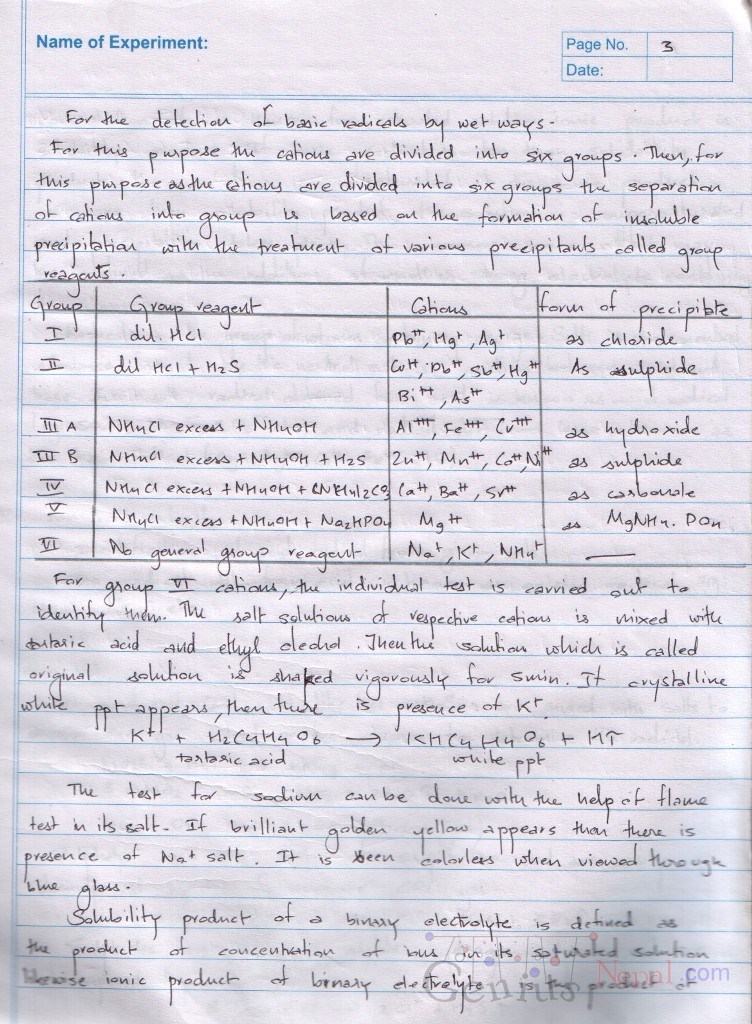 Name of Experiment:
Page No. 3
Date:
For the detection of basic radicals by wet ways.
For this purpose the cations are divided into six groups. Then, for
this purpose as the cations are divided into six groups the separation
of cations into group is based on the formation of insoluble
precipitation with the treatment of various precipitants called group
reagents.
Group Group reagent Cations form of precipitate
I dil. HCl Pb++, Hg+, Ag+ as chloride
II dil HCl + H2S Cu++, Pb++, Sb++, Hg++ As sulphide
Bi++, As++
III A NH4Cl excess + NH4OH Al+++, Fe+++, Cr+++ as hydroxide
III B NH4Cl excess + NH4OH + H2S Zn++, Mn++, Co++, Ni++ as sulphide
IV NH4Cl excess + NH4OH + (NH4)2CO3 Ca++, Ba++, Sr++ as carbonate
V NH4Cl excess + NH4OH + Na2HPO4 Mg++ as MgNH4.PO4
VI No general group reagent Na+, K+, NH4+ —
For group VI cations, the individual test is carried out to
identify them. The salt solutions of respective cations is mixed with
tartaric acid and ethyl alcohol. Then the solution which is called
original solution is shaked vigorously for 5min. If crystalline
white ppt appears, then there is presence of K+.
K+ + H2C4H4O6 → KHC4H4O6 + H+
tartaric acid white ppt
The test for sodium can be done with the help of flame
test in its salt. If brilliant golden yellow appears than there is
presence of Na+ salt. It is seen colorless when viewed through
blue glass.
Solubility product of a binary electrolyte is defined as
the product of concentration of ions in its saturated solution
likewise ionic product of binary electrolyte is the product of
GeniusNepal.com